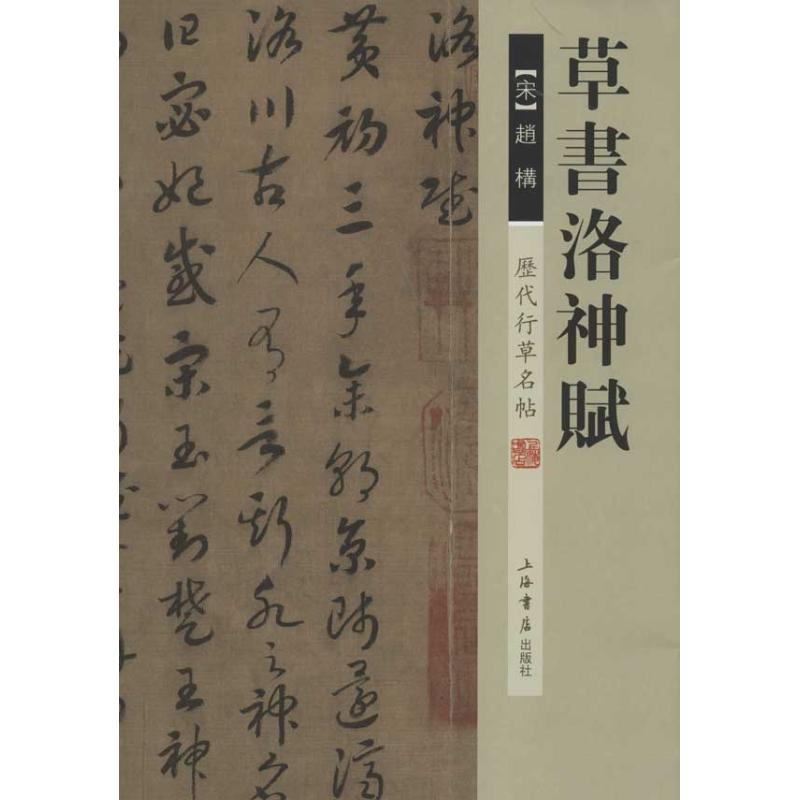 草書洛神賦
【宋】趙構
歷代行草名帖
上海書店出版社
洛神賦
黃初三年余朝京師還濟
洛川古人有言斯水之神名
曰宓妃感宋玉對楚王神